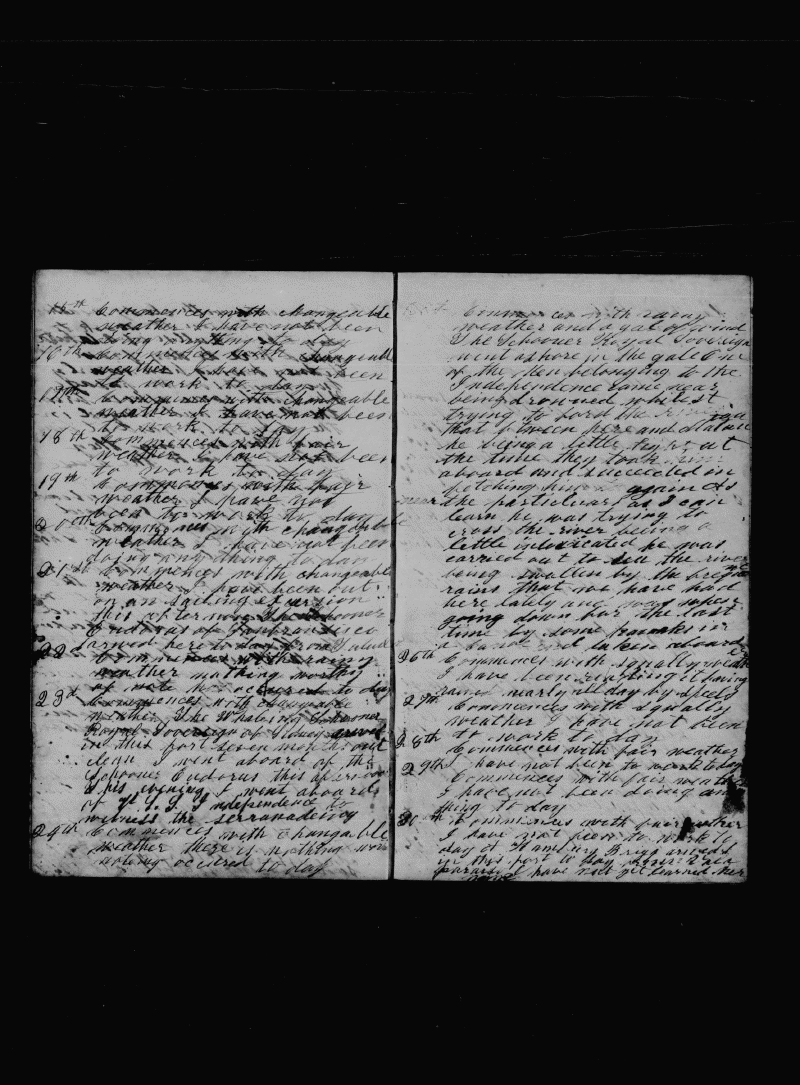 15th Commences with changeable
weather I have not been
doing anything to day
16th Commences with changeable
weather I have not been
to work to day
17th Commences with changeable
weather I have not been
to work to day
18th Commences with fair
weather I have not been
to work to day
19th Commences with fair
weather I have not
been to work to day
20th Commences with changeable
weather I have not been
doing anything to day
21st Commences with changeable
weather I have been out
on an sailing excursion
this afternoon The Schooner
Eudorus of Sanfrancisco
arived here to day from
22 Commences with rainy
weather nothing worthy
of note has occured to day
23rd Commences with changable
weather The Whaleing Schooner
Royal Sovereign of Sidney arived
in this port seven months out
clean I went aboard of the
Schooner Eudorus this afternoon
This evening I went aboard
of Independence to
witness the serranadeing
24th Commences with changable
weather there is nothing worth
noting occured to day
25th Commences with rainy
weather and a gal of wind
The Schooner Royal Sovereign
went ashore in the gale One
of the Men belonging to the
Independence came near
being drowned whilest
trying to bord the
that between here and
he being a little at
the time they took him
aboard and succeeded in
again As
near the particulars as I can
learn he was trying to
cross the river being a
little intoxicated he was
carried out to sea the river
being swollen by the
rains that we have had
here lately and was when
going down for the last
time by some
and taken aboard
26th Commences with squally weather
I have been it having
rained nearly all day by spells
27th Commences with squally
weather I have not been
to work to day
28th Commences with fair weather
I have not been to work to day
29th Commences with fair weather
I have not been doing any
thing to day
30th Commences with fair wether
I have not been to work to
day A Hamburg Brigg arived
in this port to day from
I have not yet learned her
name